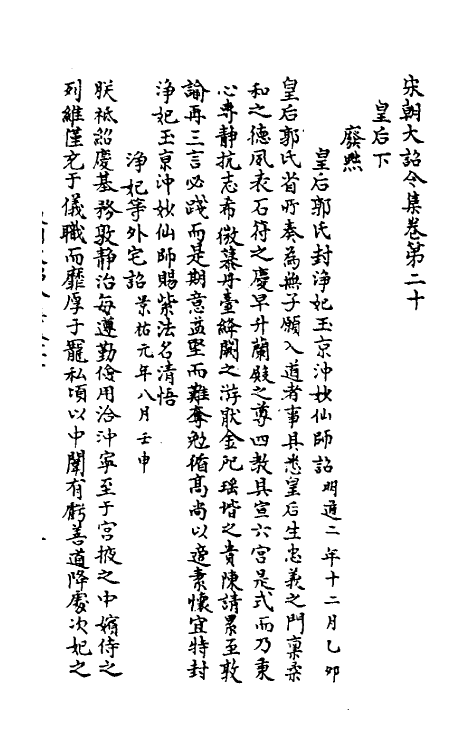 宋朝大詔令集卷第二十
皇后下
廢黜
皇后郭氏封淨妃玉京沖妙仙師詔明道二年十二月乙卯
皇后郭氏省所奏為無子願入道者事具悉皇后生忠義之門稟柔
和之德夙表石符之慶早升蘭殿之尊四教具宣六宮是式而乃秉
心專靜抗志希微慕丹臺絳闕之游厭金阤瑶堦之貴陳請累至敦
諭再三言必踐而是期意益堅而難奪勉循高尚以適素懷宜特封
淨妃玉京沖妙仙師賜紫法名清悟
淨妃等外宅詔景祐元年八月壬申
朕祗紹慶基務敦靜治每遵勤儉用洽沖寧至于宮掖之中嬪侍之
列維僅充于儀職而靡厚于寵私頃以中闈有虧善道降處次妃之